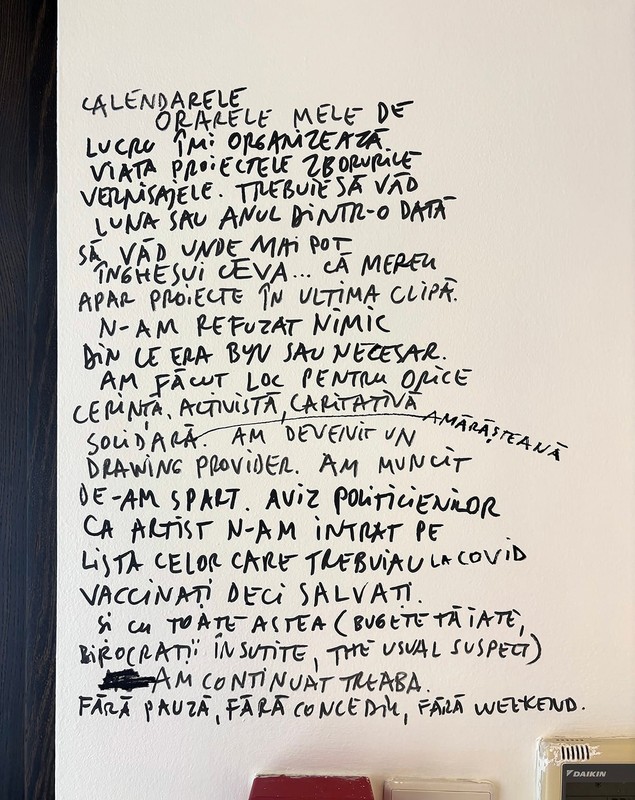 CALENDARELE
ORARELE MELE DE
LUCRU ÎMI ORGANIZEAZĂ
VIAȚA PROIECTELE ZBORURILE
VERNISAJELE. TREBUIE SĂ VĂD
LUNA SAU ANUL DINTR-O DATĂ
SĂ VĂD UNDE MAI POT
ÎNGHESUI CEVA... CĂ MEREU
APAR PROIECTE ÎN ULTIMA CLIPĂ.
N-AM REFUZAT NIMIC
DIN CE ERA BUN SAU NECESAR.
AM FĂCUT LOC PENTRU ORICE
CERINȚĂ, ACTIVISTĂ, CARITATIVĂ
AMĂRĂȘTEANĂ
SOLIDARĂ. AM DEVENIT UN
DRAWING PROVIDER. AM MUNCIT
DE-AM SPART. AVIZ POLITICIENILOR
CA ARTIST N-AM INTRAT PE
LISTA CELOR CARE TREBUIAU LA COVID
VACCINAȚI DECI SALVAȚI.
ȘI CU TOATE ASTEA (BUGETE TĂIATE,
BIROCRAȚII ÎNSUTITE, THE USUAL SUSPECT)
AM CONTINUAT TREABA.
FĂRĂ PAUZĂ, FĂRĂ CONCEDIU, FĂRĂ WEEKEND.
DAIKIN